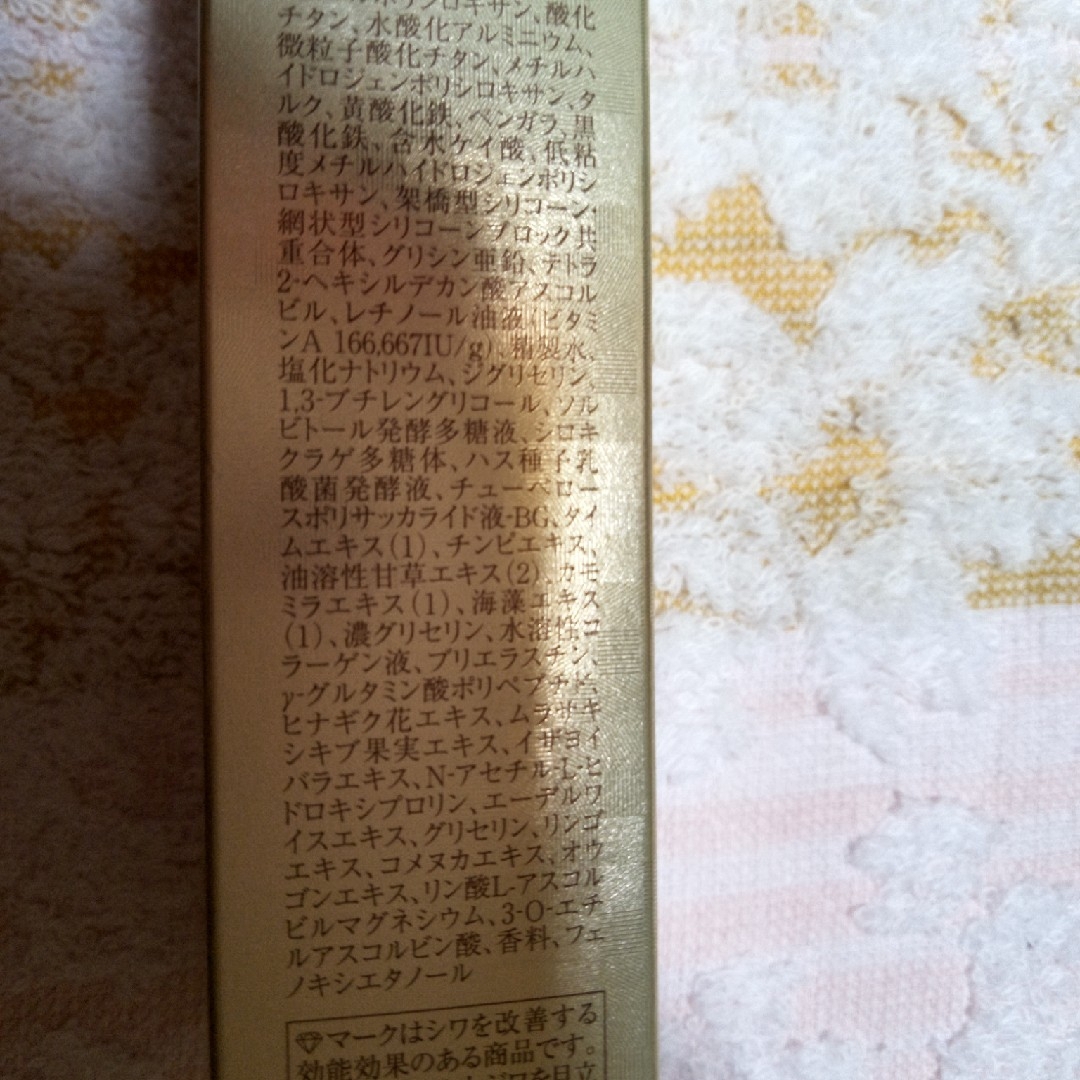 ポリシロキサン、酸化
チタン、水酸化アルミニウム、
微粒子酸化チタン、メチルハ
イドロジェンポリシロキサン、タ
ルク、黄酸化鉄、ベンガラ、黒
酸化鉄、含水ケイ酸、低粘
度メチルハイドロジェンポリシ
ロキサン、架橋型シリコーン・
網状型シリコーンブロック共
重合体、グリシン亜鉛、テトラ
2-ヘキシルデカン酸アスコル
ビル、レチノール油液(ビタミ
ンA 166,667IU/g)、精製水、
塩化ナトリウム、ジグリセリン、
1,3-ブチレングリコール、ソル
ビトール発酵多糖液、シロキ
クラゲ多糖体、ハス種子乳
酸菌発酵液、チューベロー
スポリサッカライド液-BG、タイ
ムエキス(1)、チンピエキス、
油溶性甘草エキス(2)、カモ
ミラエキス(1)、海藻エキス
(1)、濃グリセリン、水溶性コ
ラーゲン液、ブリエラスチン、
γ-グルタミン酸ポリペプチド、
ヒナギク花エキス、ムラサキ
シキブ果実エキス、イザヨイ
バラエキス、N-アセチル-L-ヒ
ドロキシプロリン、エーデルワ
イスエキス、グリセリン、リンゴ
エキス、コメヌカエキス、オウ
ゴンエキス、リン酸L-アスコル
ビルマグネシウム、3-O-エチ
ルアスコルビン酸、香料、フェ
ノキシエタノール
マークはシワを改善する
効能効果のある商品です。
シワを目立